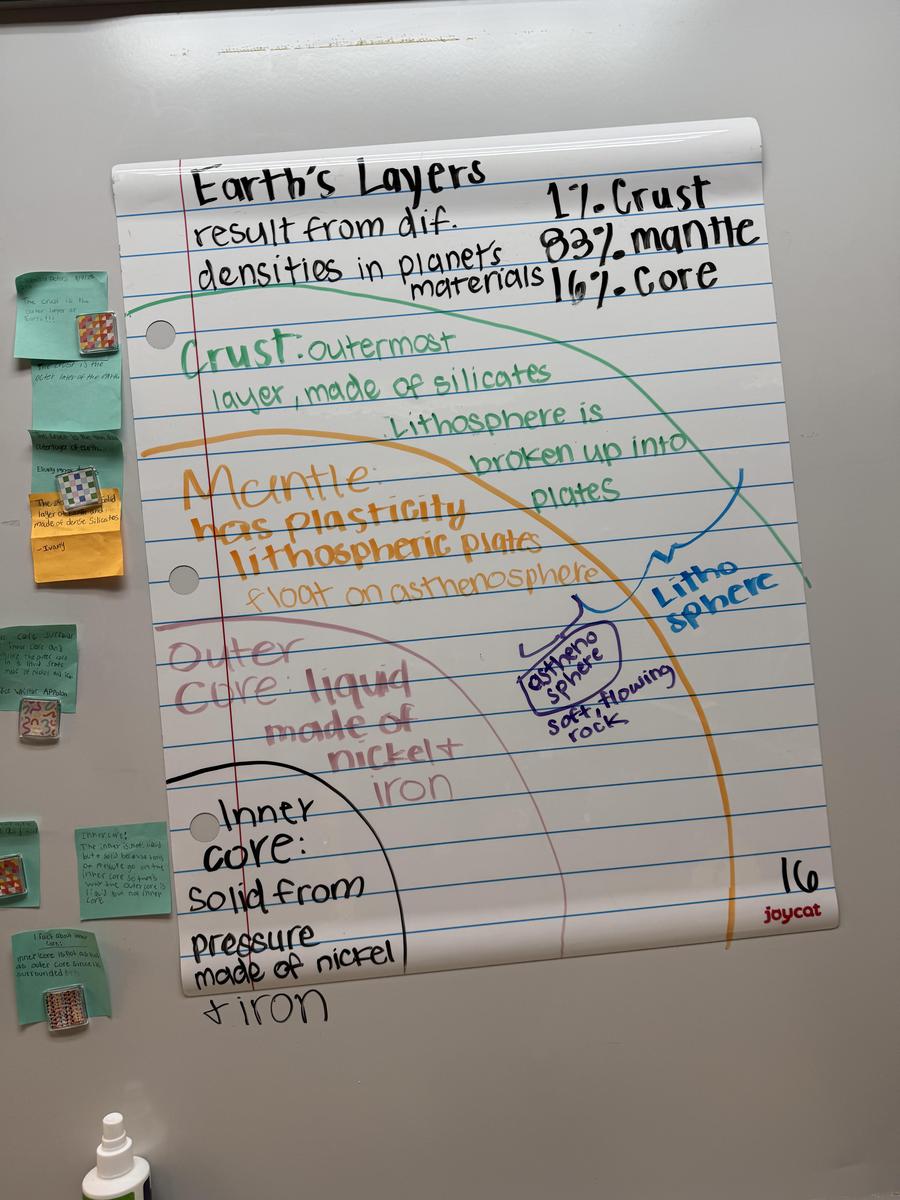 Earth's Layers
result from dif.
densities in planet's
materials
1% Crust
83% mantle
16% Core
Crust: outermost
layer, made of silicates
Lithosphere is
broken up into
plates
Mantle:
has plasticity
lithospheric plates
float on asthenosphere
Litho
sphere
astheno
sphere
soft, flowing
rock
Outer
Core: liquid
made of
nickel +
iron
Inner
core:
solid from
pressure
made of nickel
+ iron
16
joycat
The crust is the
outer layer of
The crust is the
outer layer of the earth
outer layer of earth.
solid
layer of
made of dense silicates
- Ivany
Inner core:
The inner is not liquid
but a solid because tons
of
inner core so that's
why the outer core is
liquid but not inner
core
1 fact about inner
core:
inner core is not as
as outer core since it's
surrounded